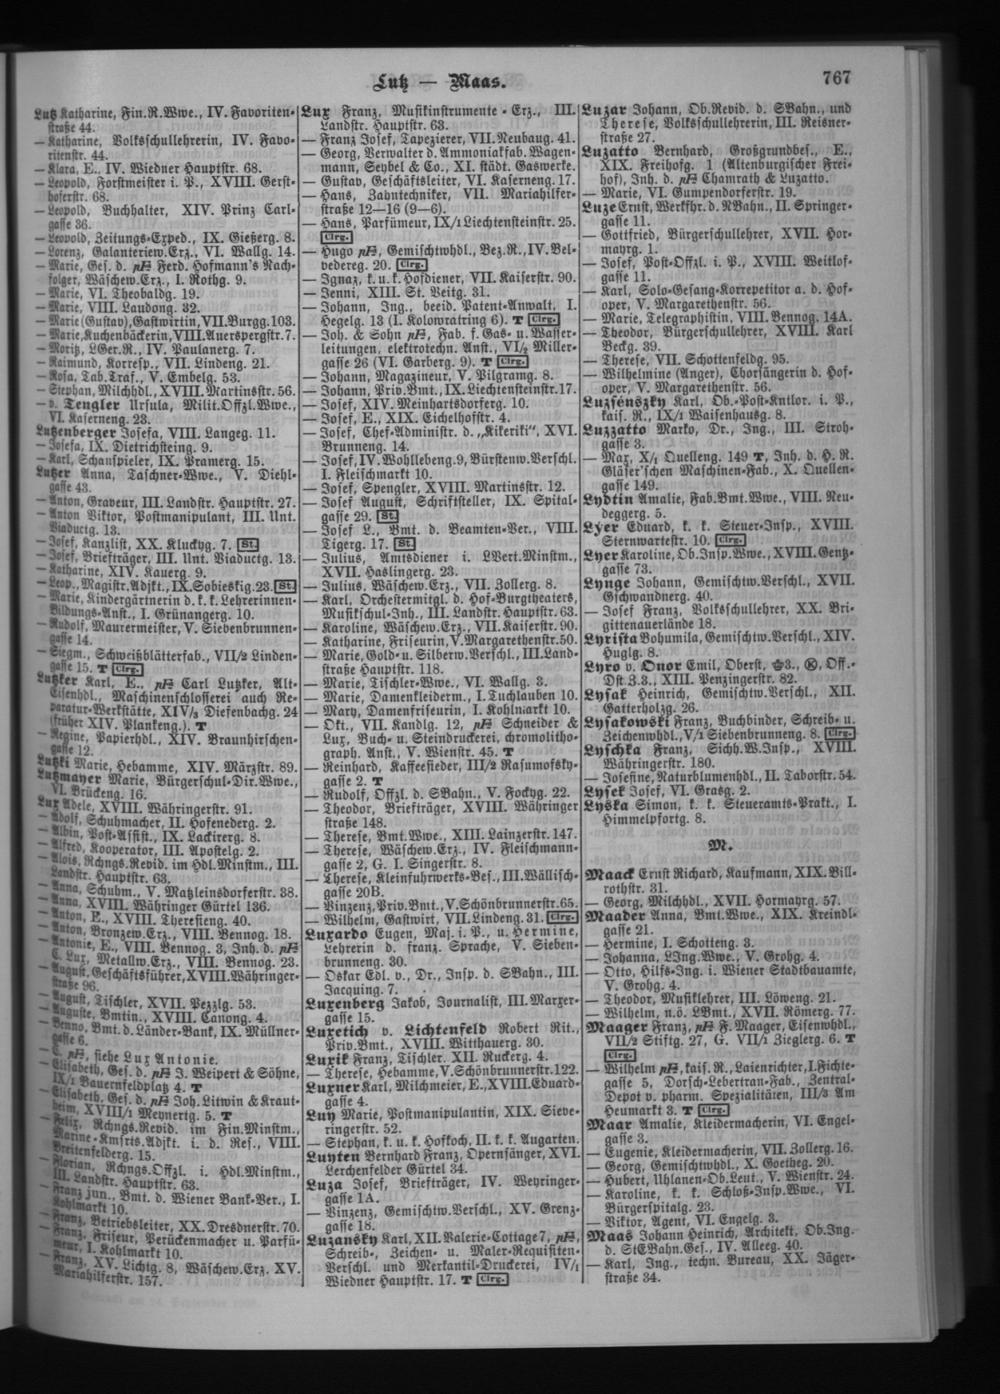 Lutz — Maas.
767
Lutz Katharine, Fin.R.Wwe., IV. Favoriten-
straße 44.
— Katharine, Volksschullehrerin, IV. Favo-
ritenstr. 44.
— Klara, E., IV. Wiedner Hauptstr. 68.
— Leopold, Forstmeister i. P., XVIII. Gerst-
hoferstr. 68.
— Leopold, Buchhalter, XIV. Prinz Carl-
gasse 36.
— Leopold, Zeitungs-Exped., IX. Gießerg. 8.
— Lorenz, Galanteriew.Erz., VI. Wallg. 14.
— Marie, Ges. d. pA Ferd. Hofmann's Nach-
folger, Wäschew.Erz., I. Rothg. 9.
— Marie, VI. Theobaldg. 19.
— Marie, VIII. Laudong. 32.
— Marie (Gustav), Gastwirtin, VII. Burgg. 103.
— Marie, Kuchenbäckerin, VIII. Auerspergstr. 7.
— Moritz, LGer.R., IV. Paulanerg. 7.
— Raimund, Korresp., VII. Lindeng. 21.
— Rosa, Tab.Traf., V. Embelg. 53.
— Stephan, Milchhdl., XVIII. Martinsstr. 56.
— v. Tengler Ursula, Milit.Offzl.Wwe.,
VI. Kaserneng. 23.
Lutzenberger Josefa, VIII. Langeg. 11.
— Josefa, IX. Dietrichsteing. 9.
— Karl, Schauspieler, IX. Pramerg. 15.
Lutzer Anna, Taschner-Wwe., V. Diehl-
gasse 43.
— Anton, Graveur, III. Landstr. Hauptstr. 27.
— Anton Viktor, Postmanipulant, III. Unt.
Viaductg. 13.
— Josef, Kanzlist, XX. Kluckyg. 7. St.
— Josef, Briefträger, III. Unt. Viaductg. 13.
— Katharine, XIV. Kauerg. 9.
— Leop., Magistr.Adjkt., IX. Sobieskig. 23. St.
— Marie, Kindergärtnerin d. k. k. Lehrerinnen-
Bildungs-Anst., I. Grünangerg. 10.
— Rudolf, Maurermeister, V. Siebenbrunnen-
gasse 14.
— Siegm., Schweißblätterfab., VII/2 Linden-
gasse 15. T Clrg.
Lutzker Karl, E., pA Carl Lutzker, Alt-
Eisenhdl., Maschinenschlosserei auch Re-
paratur-Werkstätte, XIV/3 Diefenbachg. 24
(früher XIV. Plankeng.). T
— Regine, Papierhdl., XIV. Braunhirschen-
gasse 12.
Lutzki Marie, Hebamme, XIV. Märzstr. 89.
Lutzmayer Marie, Bürgerschul-Dir.Wwe.,
VI. Brückeng. 16.
Lux Adele, XVIII. Währingerstr. 91.
— Adolf, Schuhmacher, II. Hofenederg. 2.
— Albin, Post-Assist., IX. Lackirerg. 8.
— Alfred, Kooperator, III. Apostelg. 2.
— Alois, Rchngs.Revid. im Hdl.Minstm., III.
Landstr. Hauptstr. 63.
— Anna, Schuhm., V. Matzleinsdorferstr. 38.
— Anna, XVIII. Währinger Gürtel 136.
— Anton, E., XVIII. Theresieng. 40.
— Anton, Bronzew.Erz., VIII. Bennog. 18.
— Antonie, E., VIII. Bennog. 3, Inh. d. pA
C. Lux, Metallw.Erz., VIII. Bennog. 23.
— August, Geschäftsführer, XVIII. Währinger-
straße 96.
— August, Tischler, XVII. Pezzlg. 53.
— Auguste, Bmtin., XVIII. Canong. 4.
— Benno, Bmt. d. Länder-Bank, IX. Müllner-
gasse 6.
— C. pA, siehe Lux Antonie.
— Elisabeth, Ges. d. pA J. Weipert & Söhne,
IX/1 Bauernfeldplatz 4. T
— Elisabeth, Ges. d. pA Joh. Litwin & Kraut-
heim, XVIII/1 Meynertg. 5. T
— Felix, Rchngs.Revid. im Fin.Minstm.,
Marine-Kmsrts.Adjkt. i. d. Res., VIII.
Breitenfelderg. 15.
— Florian, Rchngs.Offzl. i. Hdl.Minstm.,
III. Landstr. Hauptstr. 63.
— Franz jun., Bmt. d. Wiener Bank-Ver., I.
Kohlmarkt 10.
— Franz, Betriebsleiter, XX. Dresdnerstr. 70.
— Franz, Friseur, Perückenmacher u. Parfü-
meur, I. Kohlmarkt 10.
— Franz, XV. Lichtg. 8, Wäschew.Erz, XV.
Mariahilferstr. 157.
Lux Franz, Musikinstrumente-Erz., III.
Landstr. Hauptstr. 63.
— Franz Josef, Tapezierer, VII. Neubaug. 41.
— Georg, Verwalter d. Ammoniakfab. Wagen-
mann, Seybel & Co., XI. städt. Gaswerke.
— Gustav, Geschäftsleiter, VI. Kaserneng. 17.
— Hans, Zahntechniker, VII. Mariahilfer-
straße 12—16 (9—6).
— Hans, Parfümeur, IX/1 Liechtensteinstr. 25.
Clrg.
— Hugo pA, Gemischtwhdl., Bez.R., IV. Bel-
vedereg. 20. Clrg.
— Ignaz, k. u. k. Hofdiener, VII. Kaiserstr. 90.
— Jenni, XIII. St. Veitg. 31.
— Johann, Ing., beeid. Patent-Anwalt, I.
Hegelg. 13 (I. Kolowratring 6). T Clrg.
— Joh. & Sohn pA, Fab. f. Gas- u. Wasser-
leitungen, elektrotechn. Anst., VI/2 Miller-
gasse 26 (VI. Garberg. 9). T Clrg.
— Johann, Magazineur, V. Pilgramg. 8.
— Johann, Priv.Bmt., IX. Liechtensteinstr. 17.
— Josef, XIV. Meinhartsdorferg. 10.
— Josef, E., XIX. Eichelhofstr. 4.
— Josef, Chef-Administr. d. „Kikeriki“, XVI.
Brunneng. 14.
— Josef, IV. Wohllebeng. 9, Bürstenw.Verschl.
I. Fleischmarkt 10.
— Josef, Spengler, XVIII. Martinsstr. 12.
— Josef August, Schriftsteller, IX. Spital-
gasse 29. St.
— Josef L., Bmt. d. Beamten-Ver., VIII.
Tigerg. 17. St.
— Julius, Amtsdiener i. LVert.Minstm.,
XVII. Haslingerg. 23.
— Julius, Wäschew.Erz., VII. Zollerg. 8.
— Karl, Orchestermitgl. d. Hof-Burgtheaters,
Musikschul-Inh., III. Landstr. Hauptstr. 63.
— Karoline, Wäschew.Erz., VII. Kaiserstr. 90.
— Katharine, Friseurin, V. Margarethenstr. 50.
— Marie, Gold- u. Silberw.Verschl., III. Land-
straße Hauptstr. 118.
— Marie, Tischler-Wwe., VI. Wallg. 3.
— Marie, Damenkleiderm., I. Tuchlauben 10.
— Mary, Damenfriseurin, I. Kohlmarkt 10.
— Okt., VII. Kandlg. 12, pA Schneider &
Lux, Buch- u. Steindruckerei, chromolitho-
graph. Anst., V. Wienstr. 45. T
— Reinhard, Kaffeesieder, III/2 Rasumofsky-
gasse 2. T
— Rudolf, Offzl. d. SBahn., V. Fockyg. 22.
— Theodor, Briefträger, XVIII. Währinger
straße 148.
— Therese, Bmt.Wwe., XIII. Lainzerstr. 147.
— Therese, Wäschew.Erz., IV. Fleischmann-
gasse 2, G. I. Singerstr. 8.
— Therese, Kleinfuhrwerks-Bes., III. Wällisch-
gasse 20B.
— Vinzenz, Priv.Bmt., V. Schönbrunnerstr. 65.
— Wilhelm, Gastwirt, VII. Lindeng. 31. Clrg.
Luxardo Eugen, Maj. i. P., u. Hermine,
Lehrerin d. franz. Sprache, V. Sieben-
brunneng. 30.
— Oskar Edl. v., Dr., Insp. d. SBahn., III.
Jacquing. 7.
Luxenberg Jakob, Journalist, III. Marxer-
gasse 15.
Luxetich v. Lichtenfeld Robert Rit.,
Priv.Bmt., XVIII. Witthauerg. 30.
Luxik Franz, Tischler. XII. Ruckerg. 4.
— Therese, Hebamme, V. Schönbrunnerstr. 122.
Luxner Karl, Milchmeier, E., XVIII. Eduard-
gasse 4.
Luy Marie, Postmanipulantin, XIX. Sieve-
ringerstr. 52.
— Stephan, k. u. k. Hofkoch, II. k. k. Augarten.
Luyten Bernhard Franz, Opernsänger, XVI.
Lerchenfelder Gürtel 34.
Luza Josef, Briefträger, IV. Weyringer-
gasse 1A.
— Vinzenz, Gemischtw.Verschl., XV. Grenz-
gasse 18.
Luzansky Karl, XII. Valerie-Cottage 7, pA,
Schreib-, Zeichen- u. Maler-Requisiten-
Verschl. und Merkantil-Druckerei, IV/1
Wiedner Hauptstr. 17. T Clrg.
Luzar Johann, Ob.Revid. d. SBahn., und
Therese, Volksschullehrerin, III. Reisner-
straße 27.
Luzatto Bernhard, Großgrundbes., E.,
XIX. Freihofg. 1 (Altenburgischer Frei-
hof), Inh. d. pA Chamrath & Luzatto.
— Marie, VI. Gumpendorferstr. 19.
Luze Ernst, Werkfhr. d. NBahn., II. Springer-
gasse 11.
— Gottfried, Bürgerschullehrer, XVII. Hor-
mayrg. 1.
— Josef, Post-Offzl. i. P., XVIII. Weitlof-
gasse 11.
— Karl, Solo-Gesang-Korrepetitor a. d. Hof-
oper, V. Margarethenstr. 56.
— Marie, Telegraphistin, VIII. Bennog. 14A.
— Theodor, Bürgerschullehrer, XVIII. Karl
Beckg. 39.
— Therese, VII. Schottenfeldg. 95.
— Wilhelmine (Anger), Chorsängerin d. Hof-
oper, V. Margarethenstr. 56.
Luzsénszky Karl, Ob.-Post-Kntlor. i. P.,
kais. R., IX/1 Waisenhausg. 8.
Luzzatto Marko, Dr., Ing., III. Stroh-
gasse 3.
— Max, X/1 Quelleng. 149 T, Inh. d. H. R.
Gläser'schen Maschinen-Fab., X. Quellen-
gasse 149.
Lydtin Amalie, Fab.Bmt.Wwe., VIII. Neu-
deggerg. 5.
Lyer Eduard, k. k. Steuer-Insp., XVIII.
Sternwartestr. 10. Clrg.
Lyer Karoline, Ob.Insp.Wwe., XVIII. Gentz-
gasse 73.
Lynge Johann, Gemischtw.Verschl., XVII.
Gschwandnerg. 40.
— Josef Franz, Volksschullehrer, XX. Bri-
gittenauerlände 18.
Lyrista Bohumila, Gemischtw.Verschl., XIV.
Huglg. 8.
Lyro v. Onor Emil, Oberst, 3., Ⓚ, Off.-
Dst 3.3., XIII. Penzingerstr. 82.
Lysak Heinrich, Gemischtw.Verschl., XII.
Gatterholzg. 26.
Lysakowski Franz, Buchbinder, Schreib- u.
Zeichenwhdl., V/1 Siebenbrunneng. 8. Clrg.
Lyschka Franz, Sichh.W.Insp., XVIII.
Währingerstr. 180.
— Josefine, Naturblumenhdl., II. Taborstr. 54.
Lysek Josef, VI. Grasg. 2.
Lyska Simon, k. k. Steueramts-Prakt., I.
Himmelpfortg. 8.
M.
Maack Ernst Richard, Kaufmann, XIX. Bill-
rothstr. 31.
— Georg, Milchhdl., XVII. Hormayrg. 57.
Maader Anna, Bmt.Wwe., XIX. Kreindl-
gasse 21.
— Hermine, I. Schotteng. 3.
— Johanna, LIng.Wwe., V. Grohg. 4.
— Otto, Hilfs-Ing. i. Wiener Stadtbauamte,
V. Grohg. 4.
— Theodor, Musiklehrer, III. Löweng. 21.
— Wilhelm, n.ö. LBmt., XVII. Römerg. 77.
Maager Franz, pA F. Maager, Eisenwhdl.,
VII/2 Stiftg. 27, G. VII/1 Zieglerg. 6. T
Clrg.
— Wilhelm pA, kais. R., Laienrichter, I. Fichte-
gasse 5, Dorsch-Lebertran-Fab., Zentral-
Depot v. pharm. Spezialitäten, III/3 Am
Heumarkt 3. T Clrg.
Maar Amalie, Kleidermacherin, VI. Engel-
gasse 3.
— Eugenie, Kleidermacherin, VII. Zollerg. 16.
— Georg, Gemischtwhdl., X. Goetheg. 20.
— Hubert, Uhlanen-Ob.Leut., V. Wienstr. 24.
— Karoline, k. k. Schloß-Insp.Wwe., VI.
Bürgerspitalg. 23.
— Viktor, Agent, VI. Engelg. 3.
Maas Johann Heinrich, Architekt, Ob.Ing.
d. StEBahn.Ges., IV. Alleeg. 40.
— Karl, Ing., techn. Bureau, XX. Jäger-
straße 34.